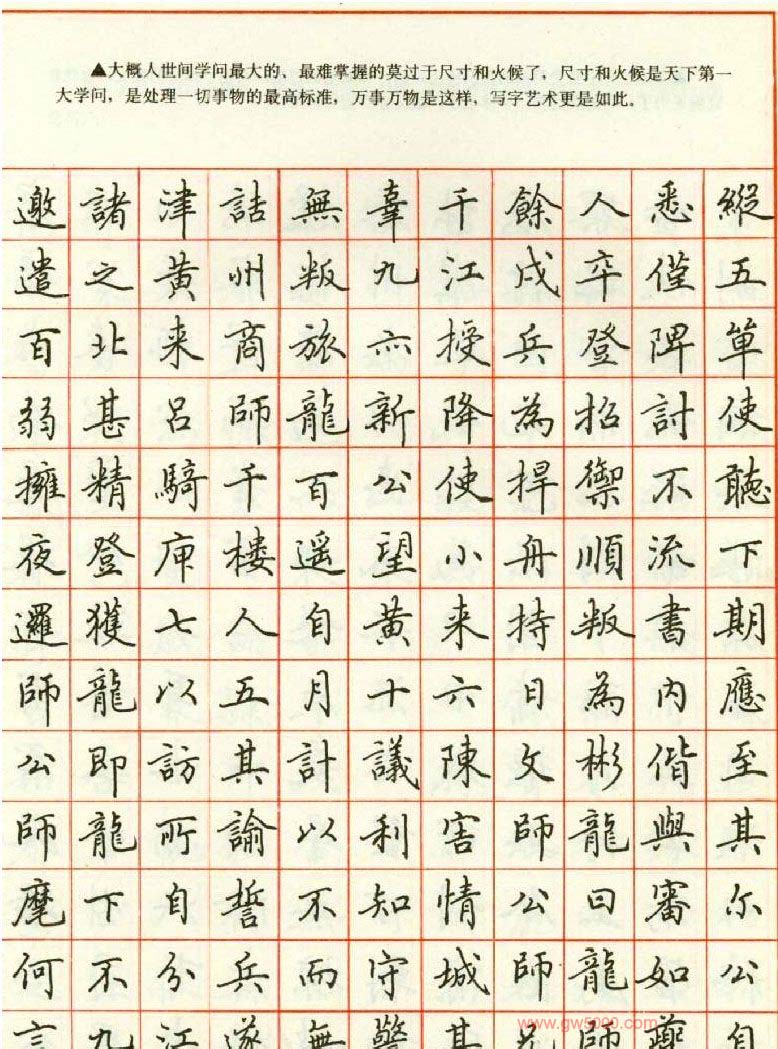 ▲大概人世间学问最大的、最难掌握的莫过于尺寸和火候了，尺寸和火候是天下第一
大学问，是处理一切事物的最高标准，万事万物是这样，写字艺术更是如此。
邀諸津詰無辜千餘人悉縱
遣之黃州叛九江戍卒僅五
百北来商旅亦授兵登陴單
弱甚呂師龍新降為招討使
擁精騎千百公使捍禦不聽
夜登庾樓遥望小舟順流下
邏獲七人自黃来持叛書期
師龍以五月十六日為内應
公即訪其計議陳文彬偕至
師龍所諭以利害師龍與其
麾下自誓不知情公曰審尔
何不分兵而守城師龍如公
言九江遂無警其兄師夔自
www.gw5000.com